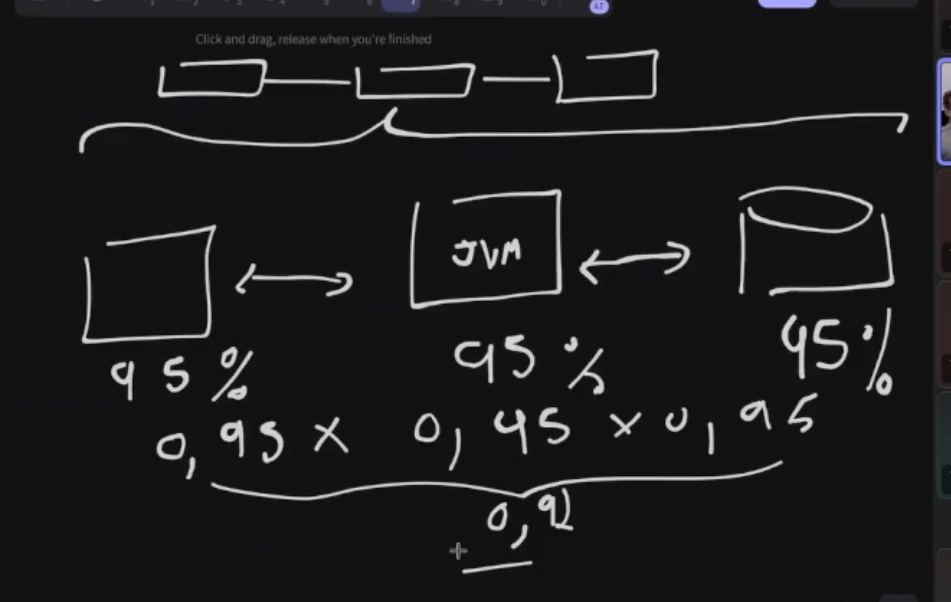 Click and drag, release when you're finished
JVM
95%
95%
95%
0,95 x 0,95 x 0,95
0,92